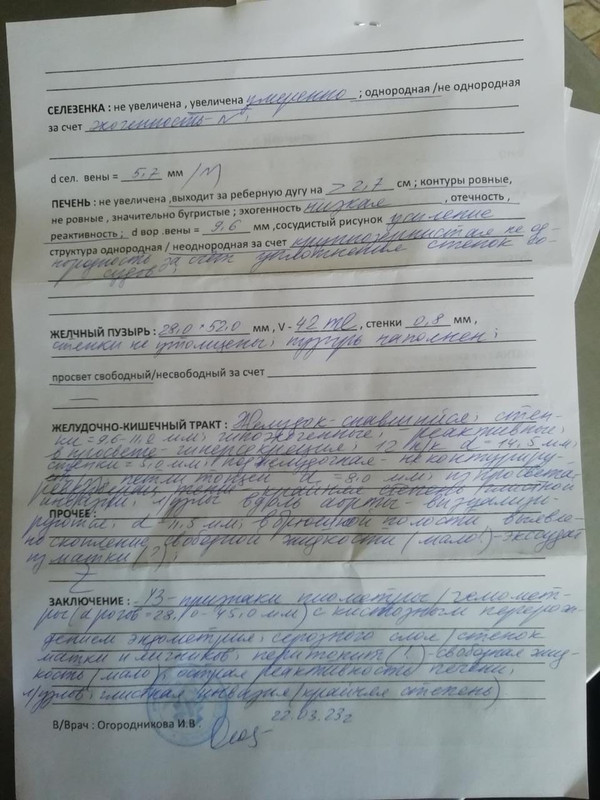 СЕЛЕЗЕНКА : не увеличена , увеличена умеренно ; однородная /не однородная
за счет эхогенность- N;
d сел. вены = 5,7 мм /N
ПЕЧЕНЬ : не увеличена ,выходит за реберную дугу на > 2,7 см ; контуры ровные,
не ровные , значительно бугристые ; эхогенность низкая , отечность ,
реактивность ; d вор .вены = 9,6 мм ,сосудистый рисунок усиление
структура однородная / неоднородная за счет крупнозернистая не од-
нородность за счет уплотнения стенок со-
судов;
ЖЕЛЧНЫЙ ПУЗЫРЬ : 28,0 * 52,0 мм , V - 42 ml , стенки 0,8 мм ,
стенки не утолщены; пузырь наполнен;
просвет свободный/несвободный за счет
—
ЖЕЛУДОЧНО-КИШЕЧНЫЙ ТРАКТ : Желудок- спавшийся; стен-
ки = 9,6 - 11,0 мм; гипоэхогенные; реактивные;
в просвете- гиперсекреция; 12 п/к d = 14,5 мм;
стенки = 5,0 мм; поджелудочная- не контуриру-
петли тощей d = 8,0 мм; из просвета
крайняя степень глистной
инвазии; л/узлы вдоль аорты- визуализи-
ПРОЧЕЕ :
руются; d = 11,5 мм; в брюшной полости выявле-
но скопление свободной жидкости (мало!)- экссудат
из матки (?);
ЗАКЛЮЧЕНИЕ : УЗ- признаки пиометры / гемомет-
ры (d рогов = 28,0 - 45,0 мм) с кистозным перерож-
дением эндометрия; серозного слоя / стенок
матки и яичников; перитонит (!)- свободная жид-
кость / мало; острая реактивность печени;
л/узлов; глистная инвазия (крайняя степень)
22.03.23г
В/Врач : Огородникова И.В